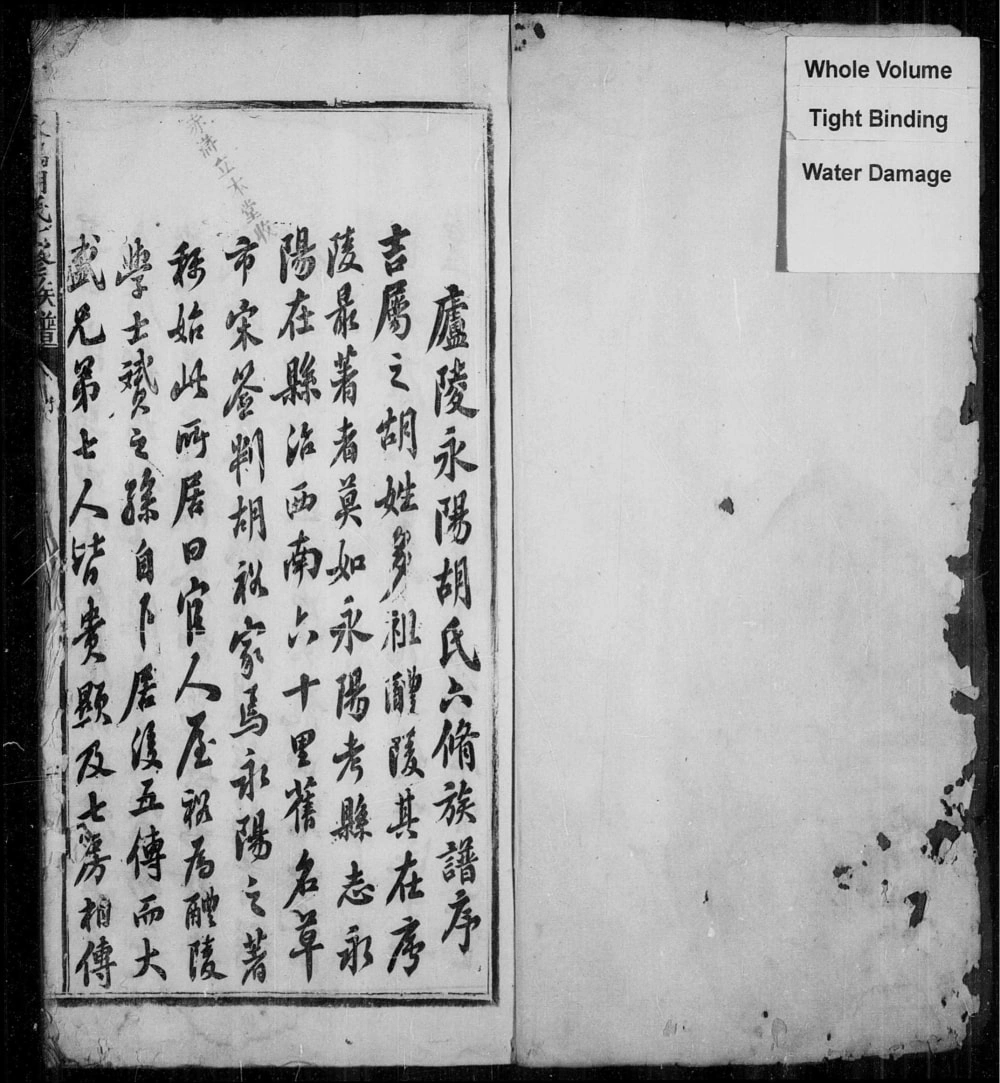 Whole Volume
Tight Binding
Water Damage
廬陵永陽胡氏六脩族譜序
吉屬之胡姓多祖醴陵其在廬
陵最著者莫如永陽考縣志永
陽在縣治西南六十里舊名草
市宋簽判胡裕家焉永陽之著
稱始此所居曰官人屋裕為醴陵
學士贇之孫自卜居後五傳而大
盛兄弟七人皆貴顯及七房相傳
立木堂收
胡氏六修族譜